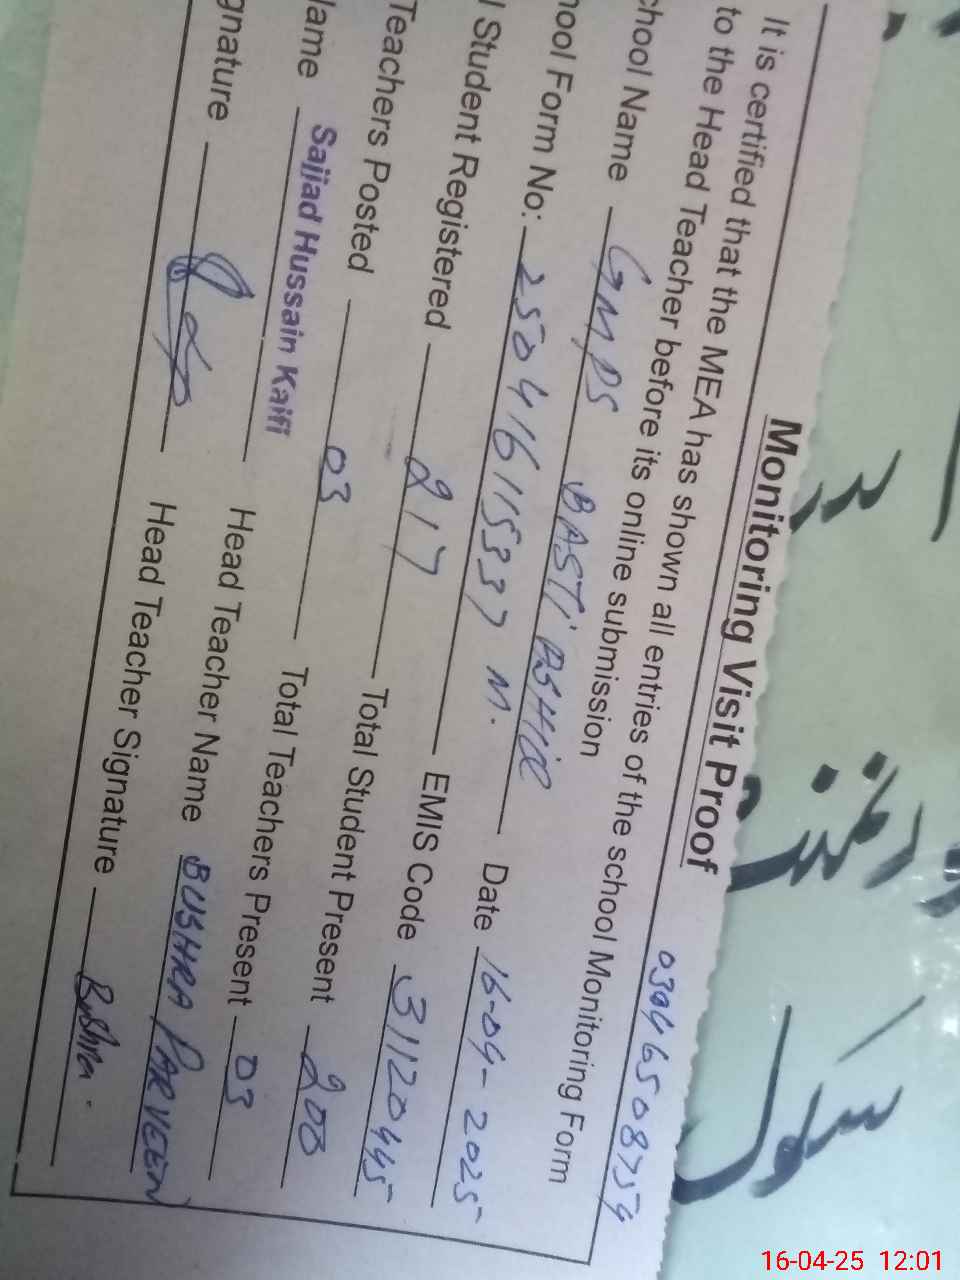 Monitoring Visit Proof
03046508754
It is certified that the MEA has shown all entries of the school Monitoring Form
to the Head Teacher before its online submission
chool Name GMPS BASTI BSHIR Date 16-04-2025
hool Form No: 25041611537 M. EMIS Code 31120445
l Student Registered 217 Total Student Present 200
Teachers Posted 03 Total Teachers Present 03
lame Sajjad Hussain Kaifi Head Teacher Name BUSHRA PARVEEN
gnature Head Teacher Signature Bushra.
سول
16-04-25 12:01